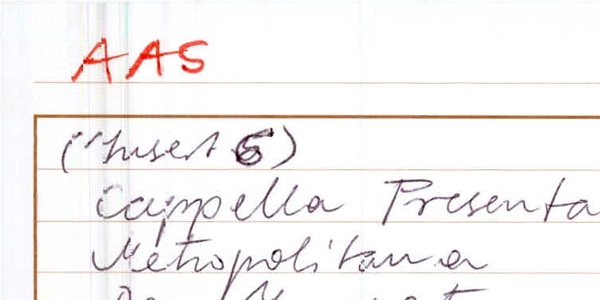 AAS
("Insert 6)
Cappella Presenta
Metropolitana